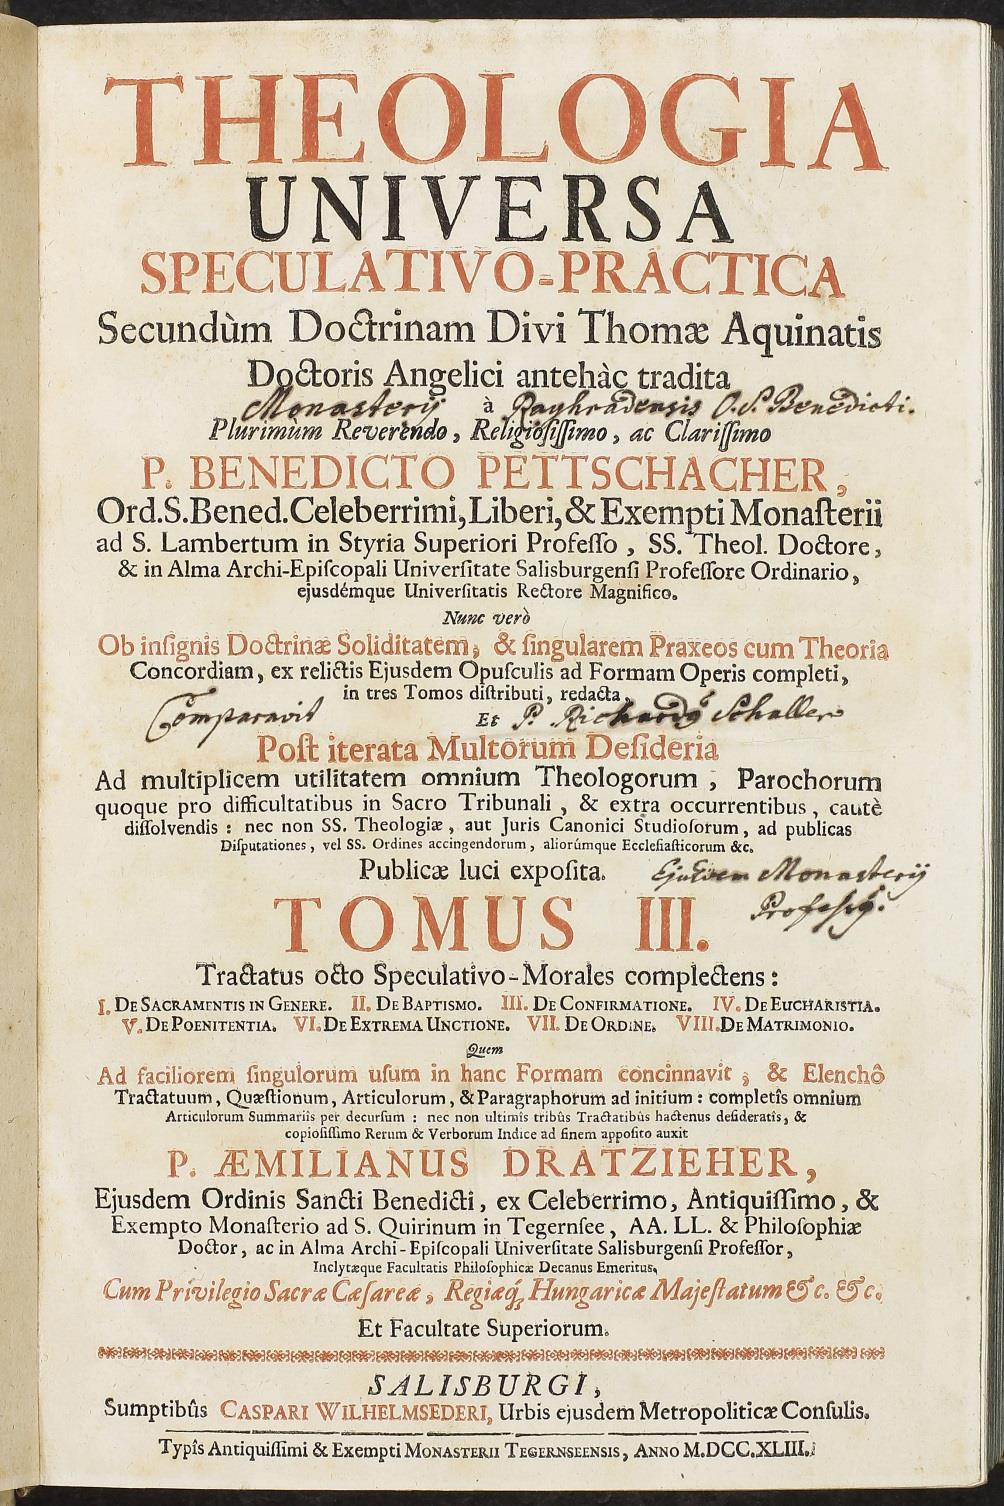 THEOLOGIA
UNIVERSA
SPECULATIVO-PRACTICA
Secundùm Doctrinam Divi Thomæ Aquinatis
Doctoris Angelici antehàc tradita
Monasterij à Rayhradensis O.S. Benedicti.
Plurimùm Reverendo, Religiosissimo, ac Clarissimo
P. BENEDICTO PETTSCHACHER,
Ord.S.Bened.Celeberrimi, Liberi, & Exempti Monasterii
ad S. Lambertum in Styria Superiori Professo, SS. Theol. Doctore,
& in Alma Archi-Episcopali Universitate Salisburgensi Professore Ordinario,
ejusdémque Universitatis Rectore Magnifico.
Nunc verò
Ob insignis Doctrinæ Soliditatem, & singularem Praxeos cum Theoria
Concordiam, ex relictis Ejusdem Opusculis ad Formam Operis completi,
in tres Tomos distributi, redacta,
Comparavit Et P. Richardq̃ Schaller
Post iterata Multorum Desideria
Ad multiplicem utilitatem omnium Theologorum, Parochorum
quoque pro difficultatibus in Sacro Tribunali, & extra occurrentibus, cautè
dissolvendis: nec non SS. Theologiæ, aut Juris Canonici Studiosorum, ad publicas
Disputationes, vel SS. Ordines accingendorum, aliorúmque Ecclesiasticorum &c.
Publicæ luci exposita. Ejusdem Monasterij
Professq̃.
TOMUS III.
Tractatus octo Speculativo-Morales complectens:
I. DE SACRAMENTIS IN GENERE. II. DE BAPTISMO. III. DE CONFIRMATIONE. IV. DE EUCHARISTIA.
V. DE POENITENTIA. VI. DE EXTREMA UNCTIONE. VII. DE ORDINE. VIII. DE MATRIMONIO.
Quem
Ad faciliorem singulorum usum in hanc Formam concinnavit, & Elenchô
Tractatuum, Quæstionum, Articulorum, & Paragraphorum ad initium: completîs omnium
Articulorum Summariîs per decursum: nec non ultimîs tribûs Tractatibûs hactenus desideratîs, &
copiosissimo Rerum & Verborum Indice ad finem apposito auxit
P. ÆMILIANUS DRATZIEHER,
Ejusdem Ordinis Sancti Benedicti, ex Celeberrimo, Antiquissimo, &
Exempto Monasterio ad S. Quirinum in Tegernsee, AA. LL. & Philosophiæ
Doctor, ac in Alma Archi-Episcopali Universitate Salisburgensi Professor,
Inclytæque Facultatis Philosophicæ Decanus Emeritus,
Cum Privilegio Sacræ Cæsareæ, Regiæq́; Hungaricæ Majestatum &c. &c.
Et Facultate Superiorum.
SALISBURGI,
Sumptibûs CASPARI WILHELMSEDERI, Urbis ejusdem Metropoliticæ Consulis.
Typîs Antiquissimi & Exempti MONASTERII TEGERNSEENSIS, ANNO M.DCC.XLIII.